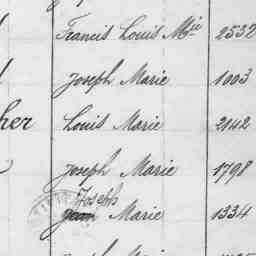 Francis Louis Mie 2532
Joseph Marie 1003
her Louis Marie 2142
Joseph Marie 1798
Joseph
Jean Marie 1334